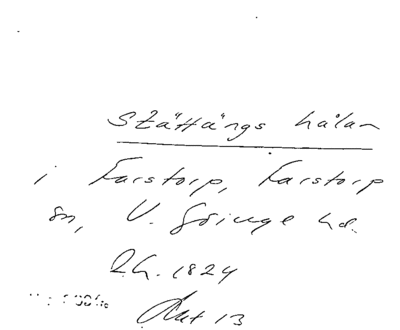 Stättängs hålan
i Farstorp, Farstorp
sn, V. Göinge hd.
R.A. 1824
Avt 13